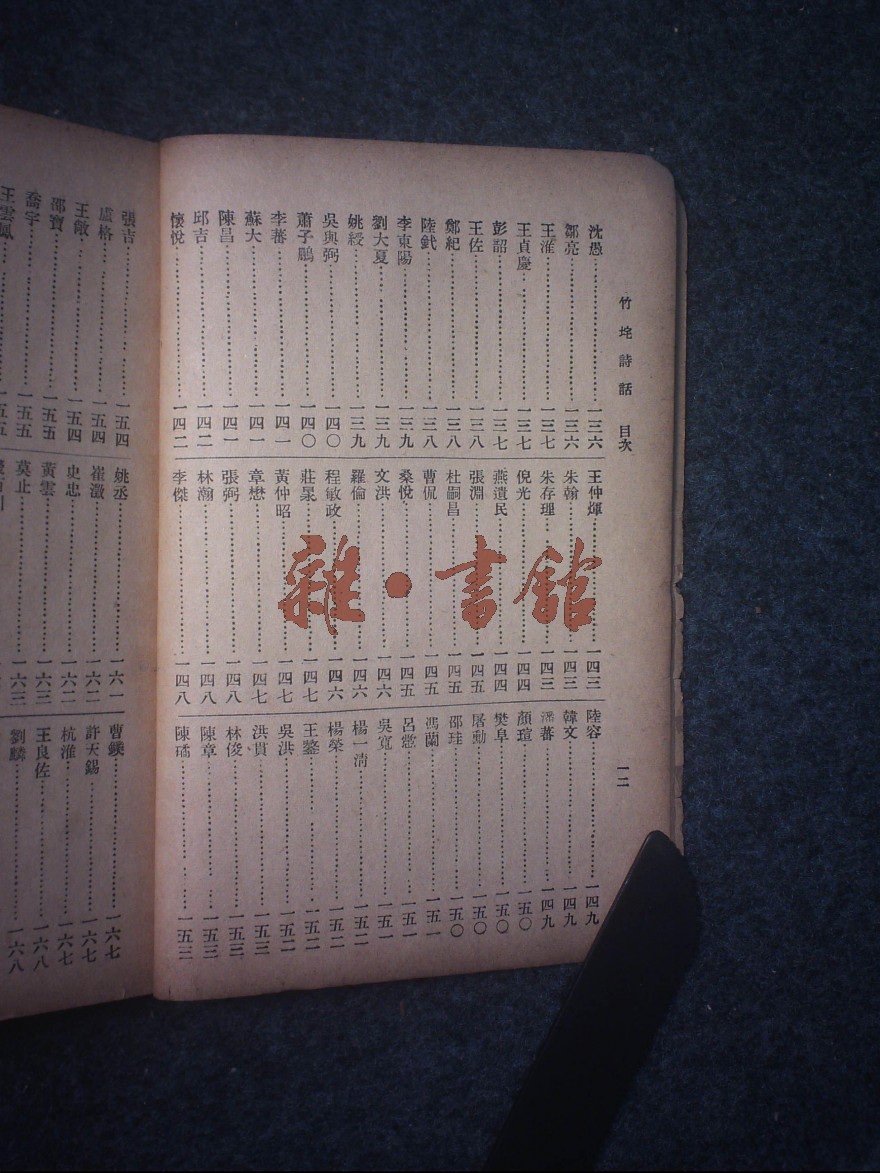 竹垞詩話 目次 一二
沈愚 一三六
鄒亮 一三六
王淮 一三七
王貞慶 一三七
彭韶 一三七
王佐 一三八
鄭紀 一三八
陸釴 一三八
李東陽 一三九
劉大夏 一三九
姚綬 一三九
吳與弼 一四〇
蕭子鵬 一四〇
李蕃 一四一
蘇大 一四一
陳昌 一四一
邱吉 一四二
懷悅 一四二
王仲煇 一四三
朱翰 一四三
朱存理 一四三
倪光 一四四
燕遺民 一四四
張淵 一四五
杜嗣昌 一四五
曹侃 一四五
桑悅 一四五
文洪 一四六
羅倫 一四六
程敏政 一四六
莊㫤 一四七
黃仲昭 一四七
章懋 一四七
張弼 一四八
林瀚 一四八
李傑 一四八
陸容 一四九
韓文 一四九
潘蕃 一四九
顏瑄 一五〇
樊阜 一五〇
屠勳 一五〇
邵珪 一五〇
馮蘭 一五一
呂 一五一
吳寬 一五一
楊一清 一五二
楊榮 一五二
王鏊 一五二
吳洪 一五二
洪貫 一五三
林俊 一五三
陳章 一五三
陳璚 一五三
張吉 一五四
盧格 一五四
王敞 一五四
邵寶 一五五
喬宇 一五五
王雲鳳 一五五
姚丞 一六一
崔澂 一六二
史忠 一六二
黃雲 一六三
莫止 一六三
曹鏌 一六七
許天錫 一六七
杭淮 一六七
王良佐 一六八
劉麟 一六八
雜·書館